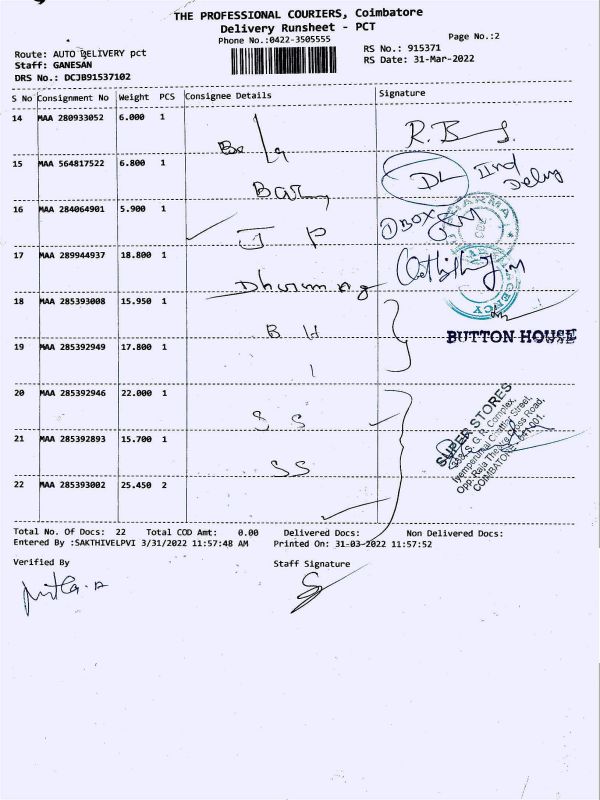 THE PROFESSIONAL COURIERS, Coimbatore
Delivery Runsheet - PCT
Phone No.:0422-3505555
Page No.:2
Route: AUTO DELIVERY pct
RS No.: 915371
Staff: GANESAN
RS Date: 31-Mar-2022
DRS No.: DCJB91537102
S No Consignment No Weight PCS Consignee Details Signature
14 MAA 280933052 6.000 1
15 MAA 564817522 6.800 1
DL IInd
16 MAA 284064901 5.900 1
J P
17 MAA 289944937 18.800 1
18 MAA 285393008 15.950 1
B H
BUTTON HOUSE
19 MAA 285392949 17.800 1
20 MAA 285392946 22.000 1
S S
21 MAA 285392893 15.700 1
SS
SUPER STORES
S. G. R. Complex,
Iyemperumal Chettiar Street,
Opp. Raja Theatre Cross Road,
COIMBATORE - 641 001.
22 MAA 285393002 25.450 2
Total No. Of Docs: 22 Total COD Amt: 0.00 Delivered Docs: Non Delivered Docs:
Entered By :SAKTHIVELPVI 3/31/2022 11:57:48 AM Printed On: 31-03-2022 11:57:52
Verified By Staff Signature